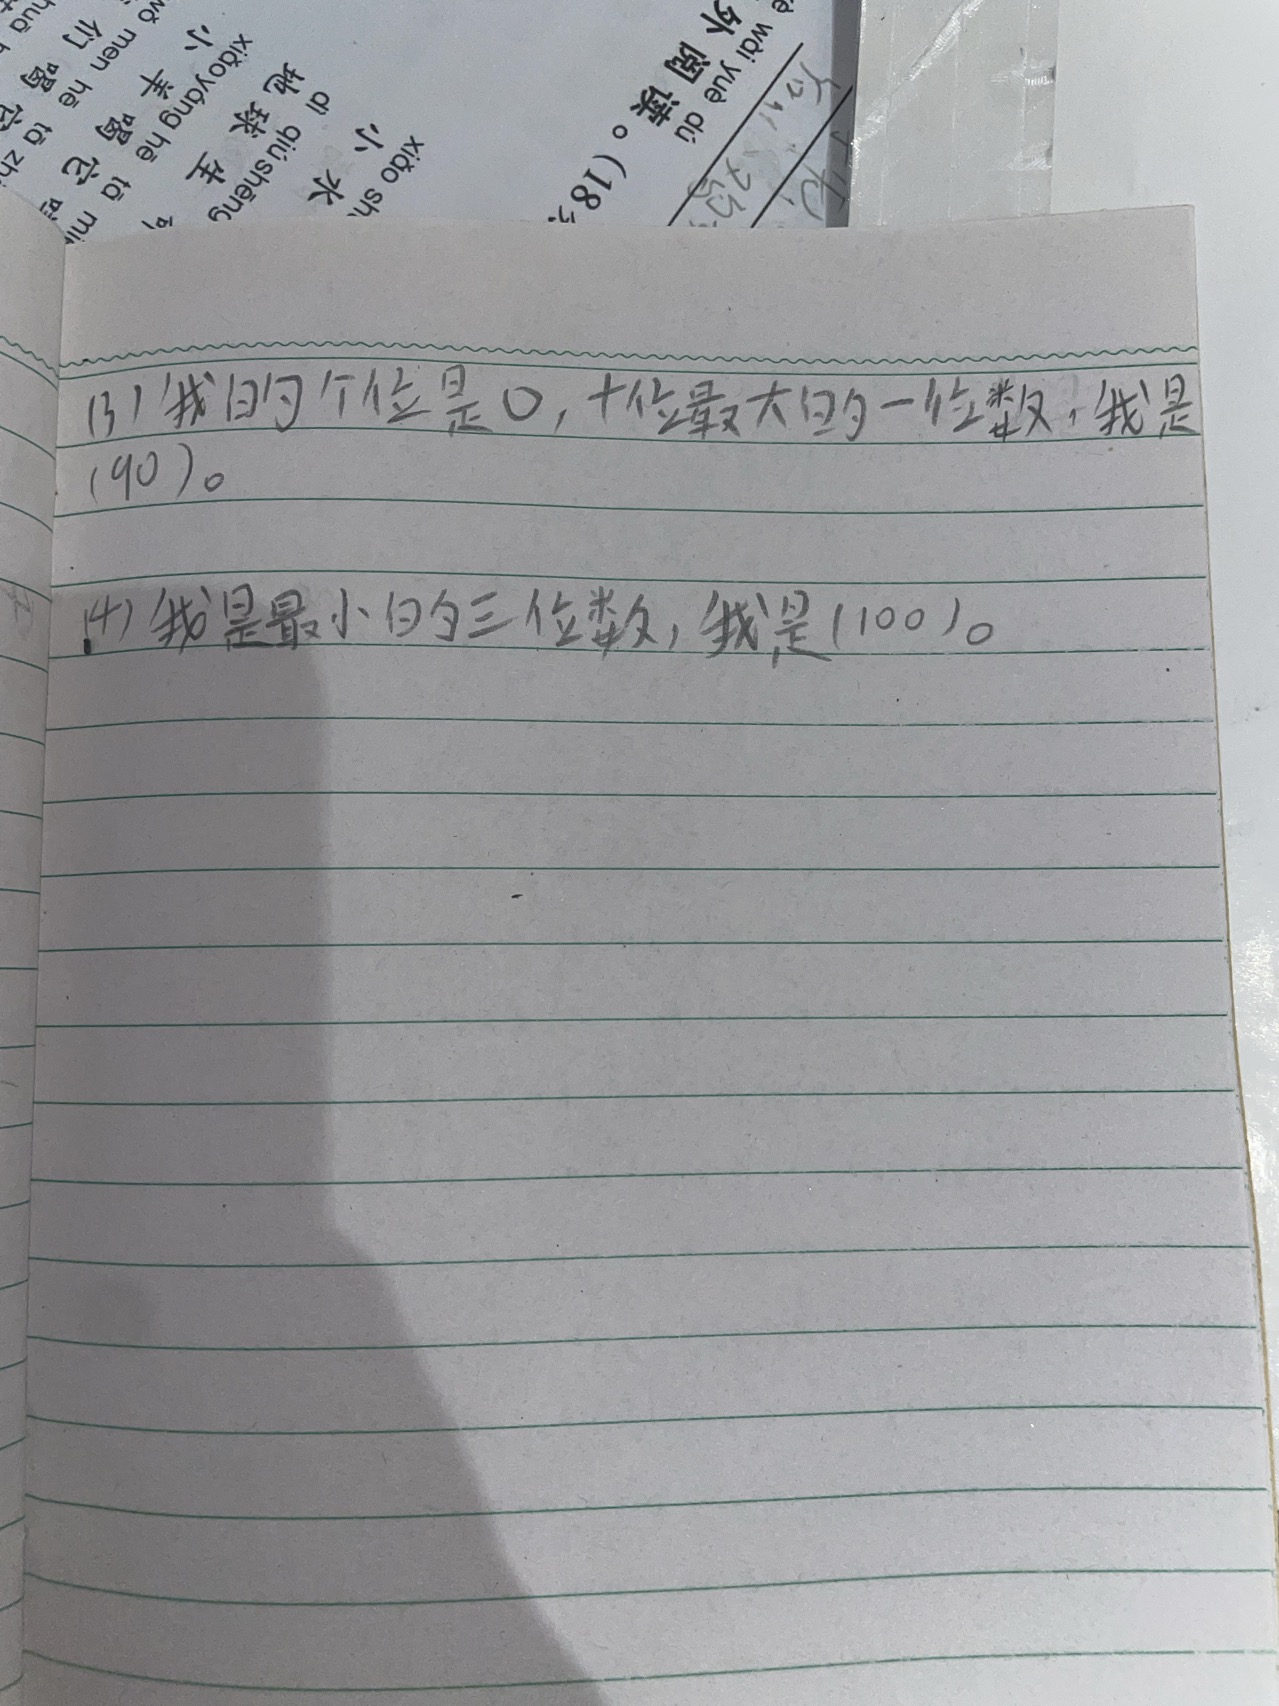 外阅读。(18分
kè wài yuè dú
小水
xiǎo sh
地球生
dì qiú shēng
小羊喝它
xiǎo yáng hē tā mi
们喝它
wǒ men hē tā zh
(3)我的个位是0,十位最大的一位数,我是
(90)。
(4)我是最小的三位数,我是(100)。